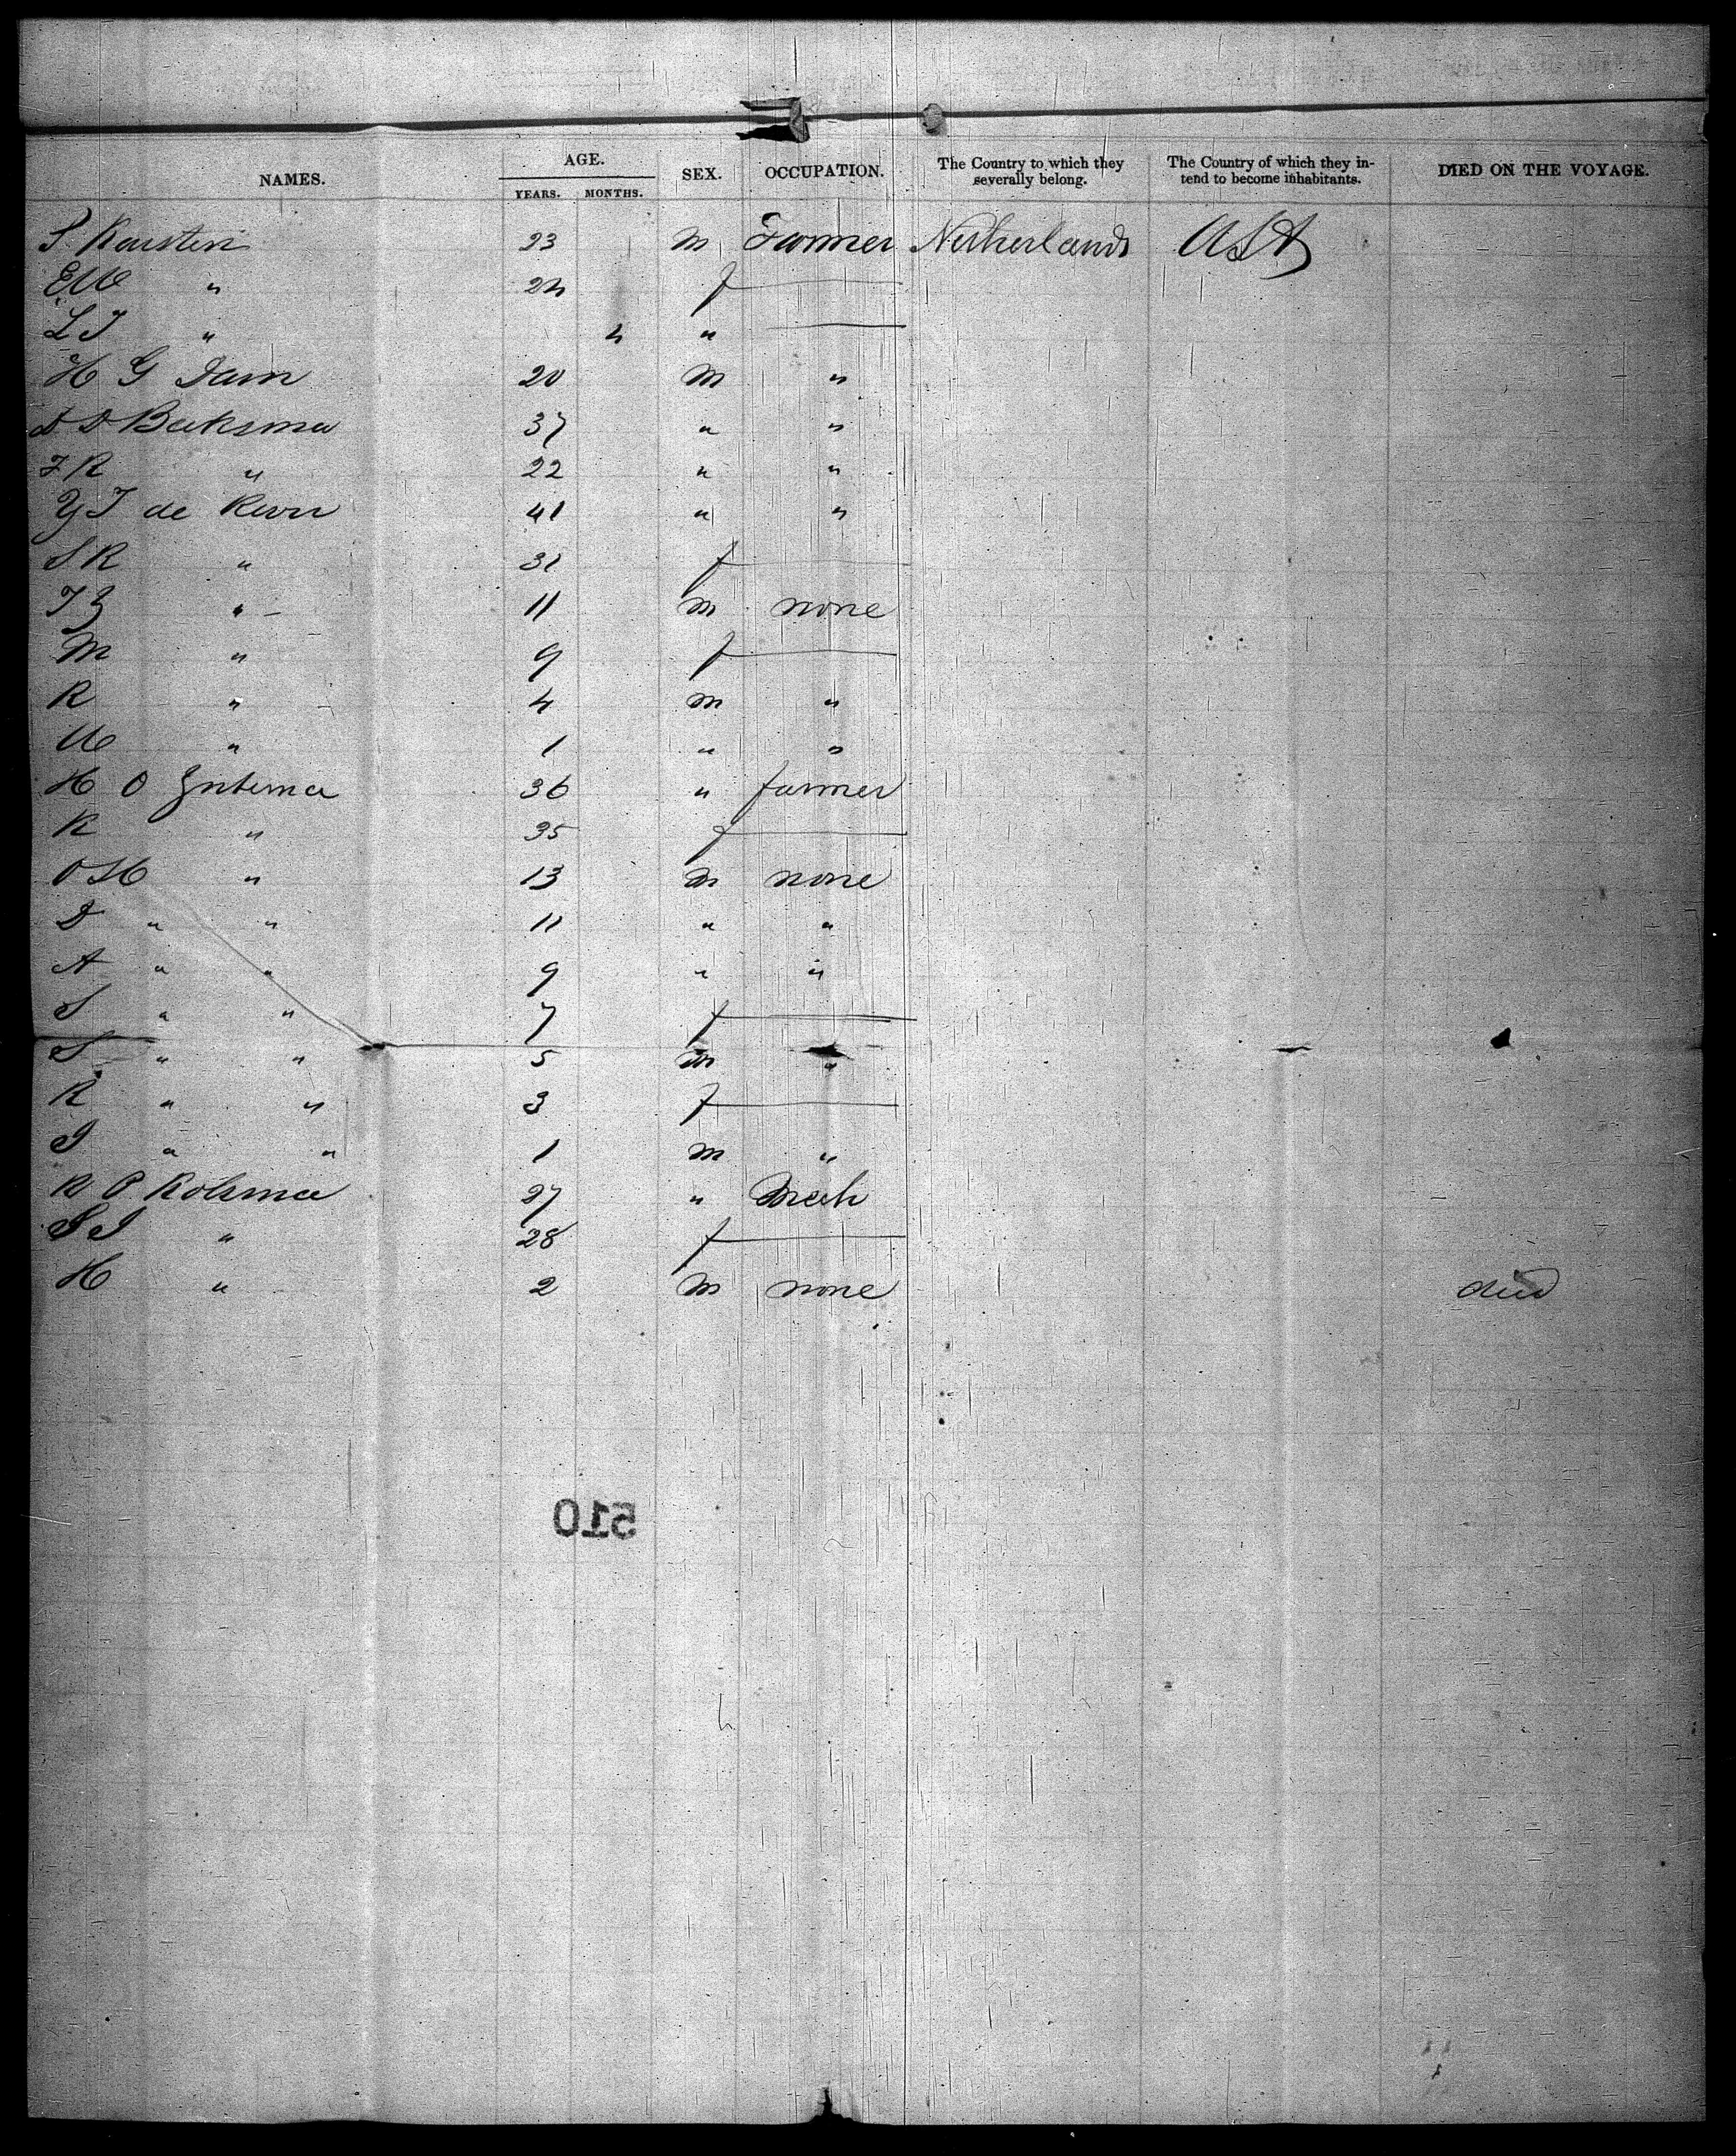 NAMES. AGE. YEARS. MONTHS. SEX. OCCUPATION. The Country to which they severally belong. The Country of which they intend to become inhabitants. DIED ON THE VOYAGE.
S Karsten 23 m Farmer Netherlands USA
EM " 24 f
L J " 4 "
H G Dam 20 m "
D D Beeksma 37 " "
F R " 22 " "
Y T de 41 " "
S R " 31 f
T Z " 11 m none
M " 9 f
R " 4 m "
U " 1 " "
H O 36 " farmer
K " 35 f
O H " 13 m none
D " " 11 " "
A " " 9 " "
S " " 7 f
S " " 5 m "
R " " 3 f
J " " 1 m "
R P Rolsma 27 " Mech
S J " 28 f
H " 2 m none died
510